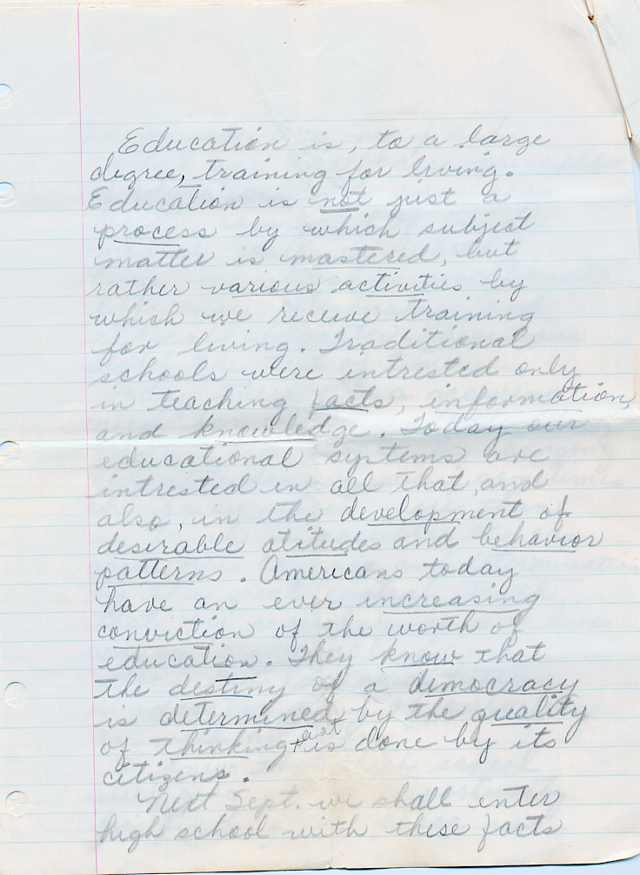 Education is, to a large
degree, training for living.
Education is not just a
process by which subject
matter is mastered, but
rather various activities by
which we receive training
for living. Traditional
schools were intrested only
in teaching facts, information,
and knowledge. Today our
educational systems are
intrested in all that, and
also, in the development of
desirable atitudes and behavior
patterns. Americans today
have an ever increasing
conviction of the worth of
education. They know that
the destiny of a democracy
is determined by the quality
of thinking that is done by its
citizens.
Next Sept. we shall enter
high school with these facts